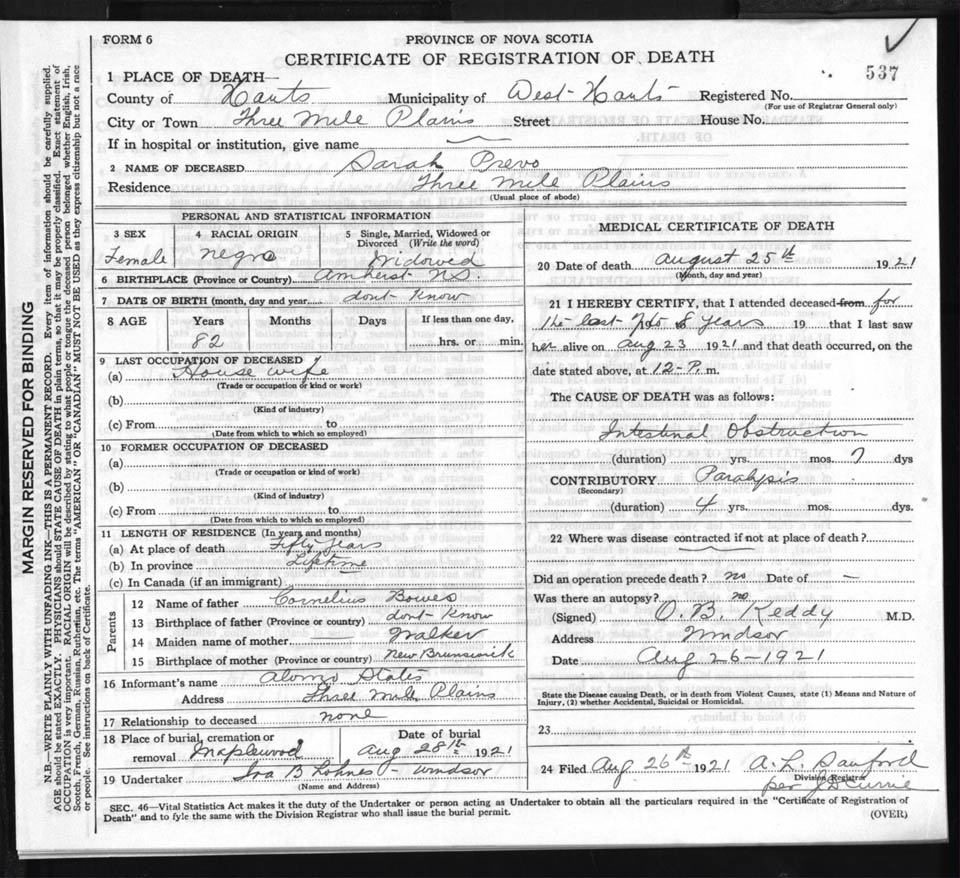 FORM 6
PROVINCE OF NOVA SCOTIA
CERTIFICATE OF REGISTRATION OF DEATH
537
1 PLACE OF DEATH—
County of Hants Municipality of West Hants Registered No.
(For use of Registrar General only)
City or Town Three Mile Plains Street House No.
If in hospital or institution, give name
2 NAME OF DECEASED Sarah Prevo
Residence Three Mile Plains
(Usual place of abode)
PERSONAL AND STATISTICAL INFORMATION
3 SEX 4 RACIAL ORIGIN 5 Single, Married, Widowed or Divorced (Write the word)
Female negro Widowed
6 BIRTHPLACE (Province or Country) Amherst N.S.
7 DATE OF BIRTH (month, day and year) dont know
8 AGE Years Months Days If less than one day,
82 hrs. or min.
9 LAST OCCUPATION OF DECEASED
(a) House wife
(Trade or occupation or kind or work)
(b)
(Kind of industry)
(c) From to
(Date from which to which so employed)
10 FORMER OCCUPATION OF DECEASED
(a)
(Trade or occupation or kind of work)
(b)
(Kind of industry)
(c) From to
(Date from which to which so employed)
11 LENGTH OF RESIDENCE (In years and months)
(a) At place of death Fifty years
(b) In province Lifetime
(c) In Canada (if an immigrant)
Parents
12 Name of father Cornelius Bowes
13 Birthplace of father (Province or country) dont know
14 Maiden name of mother Walker
15 Birthplace of mother (Province or country) New Brunswick
16 Informant's name Alonzo States
Address Three Mile Plains
17 Relationship to deceased none
18 Place of burial, cremation or removal Maplewood Date of burial Aug 28th 1921
19 Undertaker Ira B Lohnes - Windsor
(Name and Address)
MEDICAL CERTIFICATE OF DEATH
20 Date of death August 25th 1921
(Month, day and year)
21 I HEREBY CERTIFY, that I attended deceased from for
the last 7 to 8 years 19 that I last saw
her alive on Aug 23 1921 and that death occurred, on the
date stated above, at 12-P. m.
The CAUSE OF DEATH was as follows:
Intestinal Obstruction
(duration) yrs. mos. 7 dys
CONTRIBUTORY Paralysis
(Secondary)
(duration) 4 yrs. mos. dys.
22 Where was disease contracted if not at place of death?
Did an operation precede death? no Date of —
Was there an autopsy? no
(Signed) O. B. Keddy M.D.
Address Windsor
Date Aug 26-1921
State the Disease causing Death, or in death from Violent Causes, state (1) Means and Nature of
Injury, (2) whether Accidental, Suicidal or Homicidal.
23
24 Filed Aug 26th 1921 A. L. Sanford
Division Registrar
per J D Currie
SEC. 46—Vital Statistics Act makes it the duty of the Undertaker or person acting as Undertaker to obtain all the particulars required in the "Certificate of Registration of
Death" and to fyle the same with the Division Registrar who shall issue the burial permit.
(OVER)
MARGIN RESERVED FOR BINDING
N.B.—WRITE PLAINLY WITH UNFADING INK—THIS IS A PERMANENT RECORD. Every item of information should be carefully supplied.
AGE should be stated EXACTLY. PHYSICIANS should STATE CAUSE OF DEATH in plain terms, so that it may be properly classified. Exact statement of
OCCUPATION is very important. RACIAL ORIGIN will be described by stating to what people or tongue the deceased person belonged whether English, Irish,
Scotch, French, German, Russian, Ruthenian, etc. The terms "AMERICAN" OR "CANADIAN" MUST NOT BE USED as they express citizenship but not a race
or people. See instructions on back of Certificate.